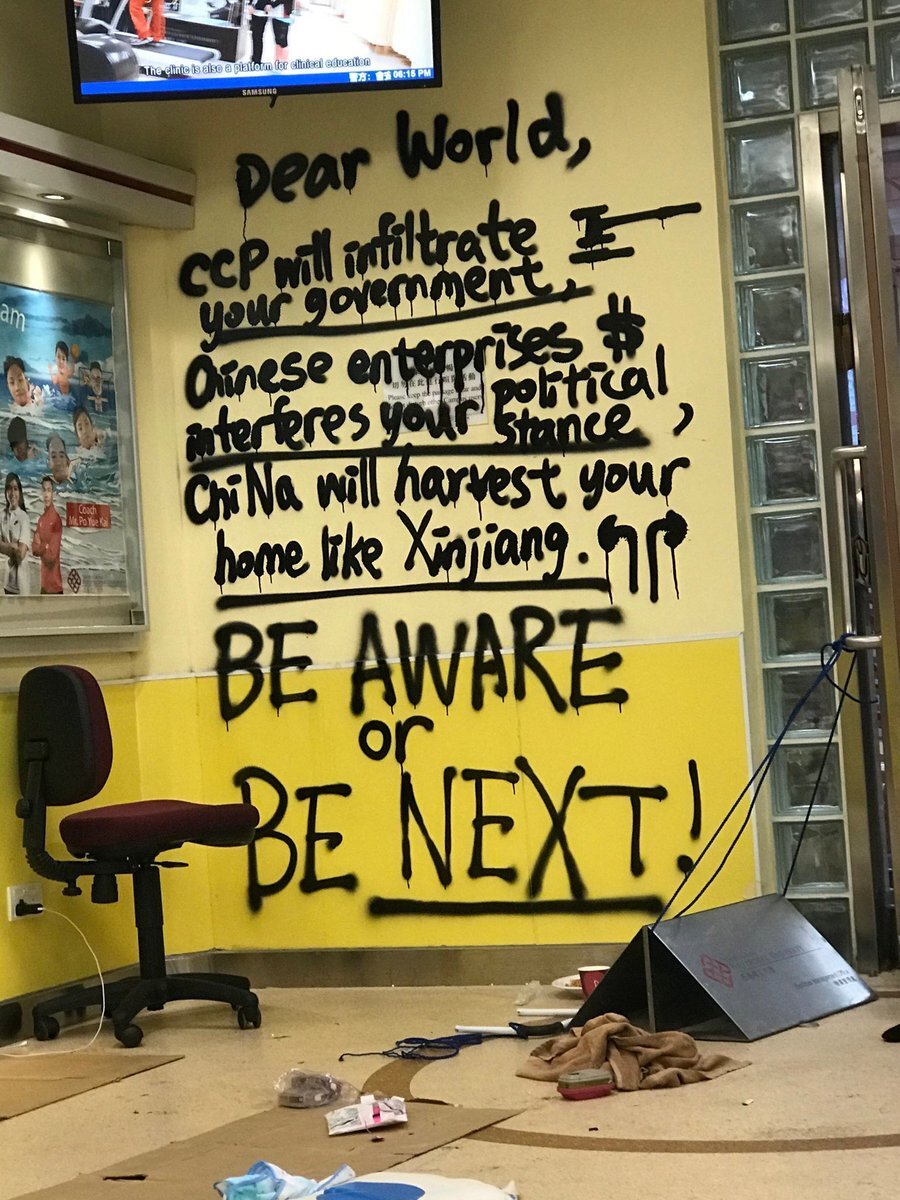 The clinic is also a platform for clinical education
警方：
06:15 PM
SAMSUNG
Dear World,
CCP will infiltrate
your government,
Chinese enterprises $
interferes your political
stance,
ChiNa will harvest your
home like Xinjiang.
BE AWARE
or
BE NEXT!
am
Coach
Mr. Po Yue Kai